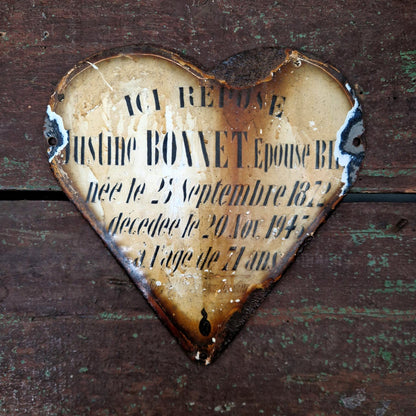 ICI REPOSE
Justine BONNET Epouse
née le 25 Septembre 1872
décédée le 20 Nov. 1943
à l'age de 71 ans